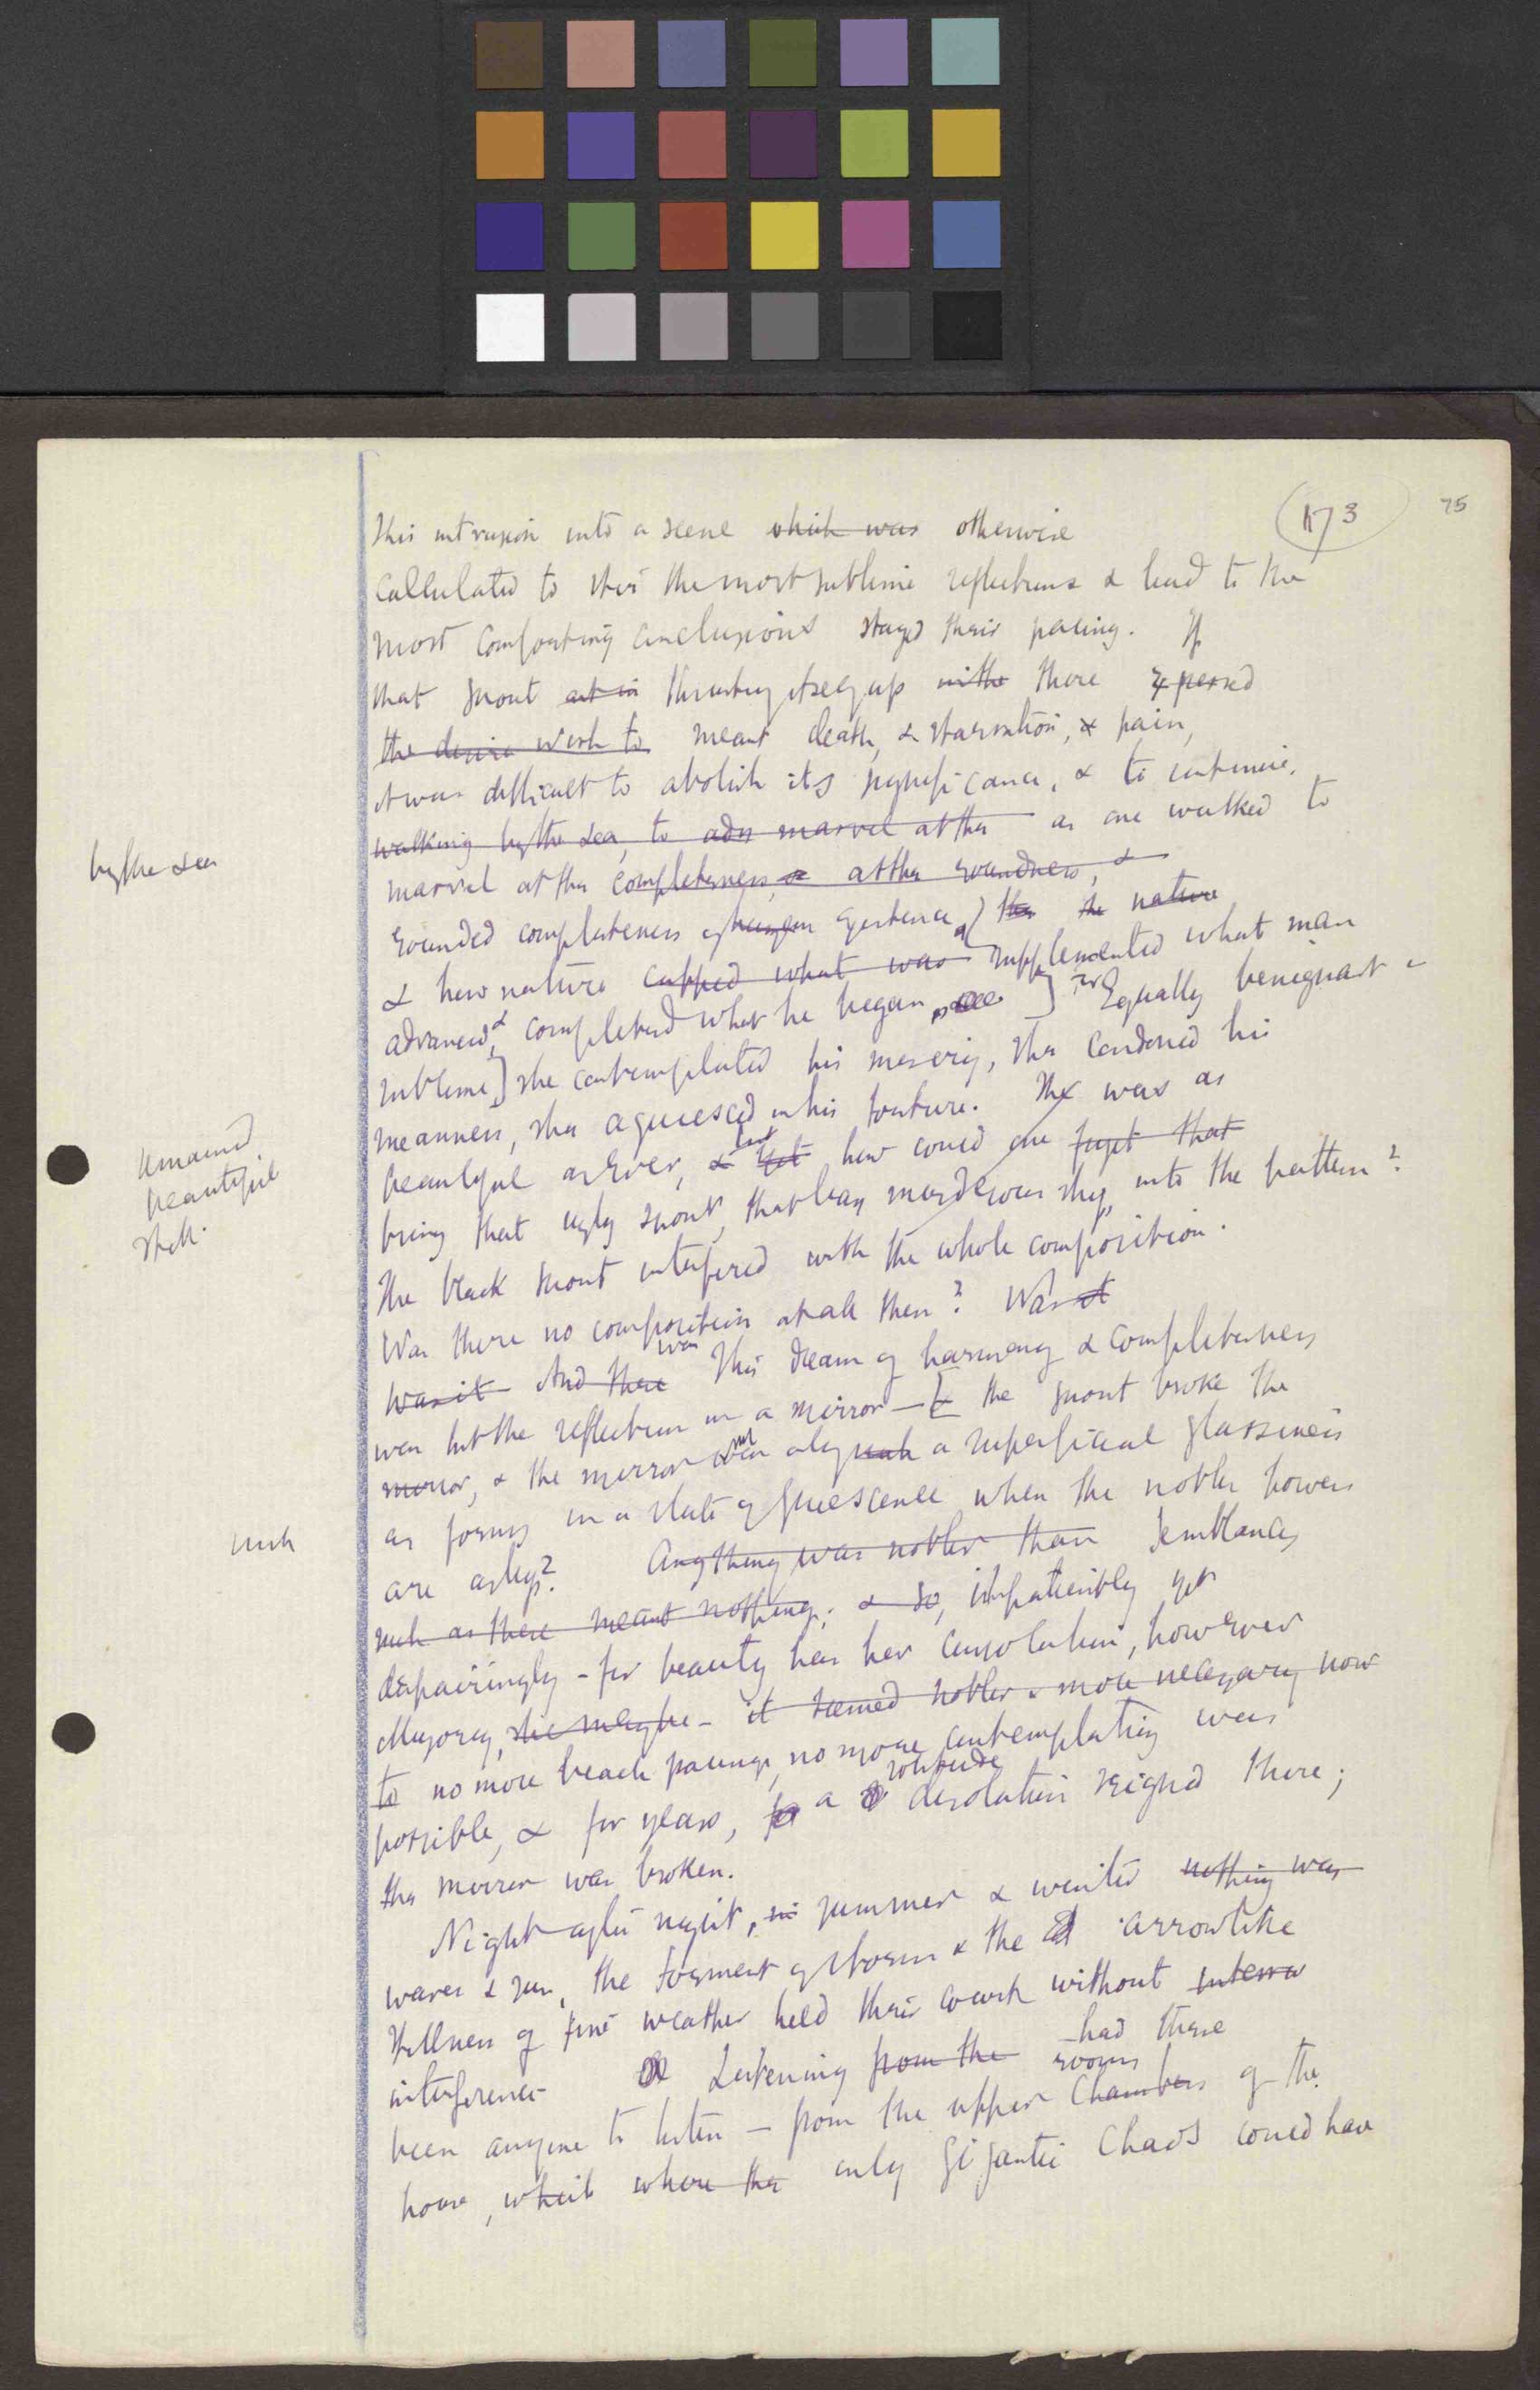 173
75
This intrusion into a scene which was otherwise
calculated to stir the most sublime reflections & lead to the
most comforting conclusions stayed their pacing. If
that snout thrusting itself up there
the desire wish to meant death, & starvation, & pain,
it was difficult to abolish its significance, & to continue,
walking by the sea, to marvel at the as one walked to
by the sea
marvel at the completeness, & at the roundness, &
rounded completeness of human existence, the the nature
& how nature capped what was supplemented what man
advanced, & completed what he began Equally benignant &
sublime] she contemplated his misery, she condoned his
meanness, she aquiesced in his torture. She was as
remained
beautiful
still.
beautiful as ever, & yet but how could one forget that
bring that ugly snout, that murderous ship, into the pattern?
The black snout interfered with the whole composition.
Was there no composition at all then? Was it
Was it And there was This dream of harmony & completeness
was but the reflection in a mirror — & the snout broke the
mirror, & the mirror was only such a superficial glassiness
such
as forms in a state of quiescence when the nobler powers
are asleep? Anything was nobler than semblances
such as these meant nothing. & so, impatiently yet
despairingly - for beauty has her consolation, however
illusory, she maybe - it seemed nobler & more necessary now
to no more beach pacing, no more contemplating was
possible, & for years, for a solitude desolation reigned there;
the mirror was broken.
Night after night, in summer & winter nothing was
waves & sun, the torment of storm & the arrowlike
stillness of fine weather held their court without
interference Listening from the had there
been anyone to listen — from the upper chambers rooms of the
house, which where the only gigantic chaos could have